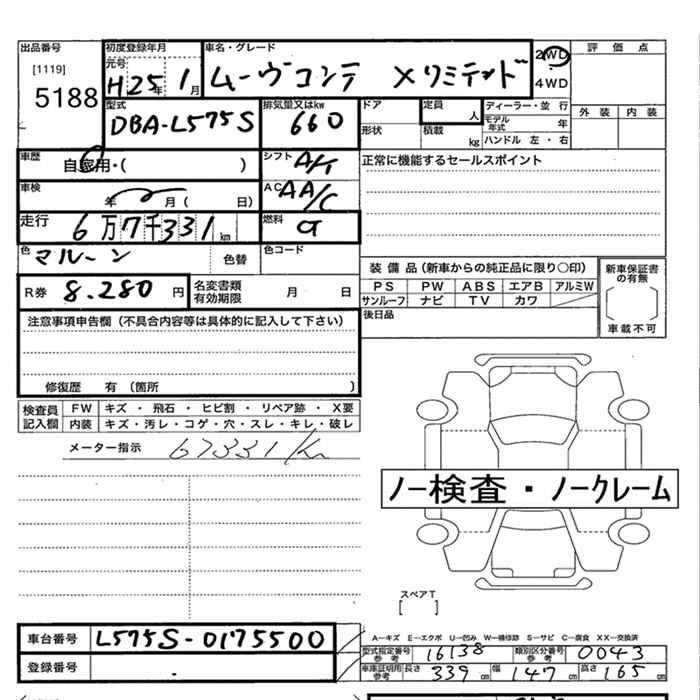 出品番号 初度登録年月 車名・グレード 2WD 評価点
[1119] 元号
5188 H25年 1月 ムーヴコンテ Xリミテッド ・
4WD 外装 内装
型式 排気量又はkw ドア 定員 人 ディーラー・並行
DBA-L575S 660 形状 積載 kg モデル年式 年
ハンドル 左・右
車歴 自家用・( ) シフト A/T 正常に機能するセールスポイント
車検 年 月( 日) AC AA/C
走行 6万7千331km 燃料 G
色 マルーン 色替 色コード
装備品(新車からの純正品に限り○印) 新車保証書の有無
R券 8.280円 名変書類有効期限 月 日 PS PW ABS エアB アルミW
サンルーフ ナビ TV カワ 車載不可
注意事項申告欄(不具合内容等は具体的に記入して下さい) 後日品
修復歴 有(箇所 )
検査員記入欄 FW キズ・飛石・ヒビ割・リペア跡・X要
内装 キズ・汚レ・コゲ・穴・スレ・キレ・破レ
メーター指示 67331km
ノー検査・ノークレーム
スペアT
[ ]
車台番号 L575S-0175500 A―キズ E―エクボ U―凹み W―補修跡 S―サビ C―腐食 XX―交換済
型式指定番号参考 16138 類別区分番号参考 0043
登録番号 車庫証明用参考 長さ 339cm 幅 147cm 高さ 165cm